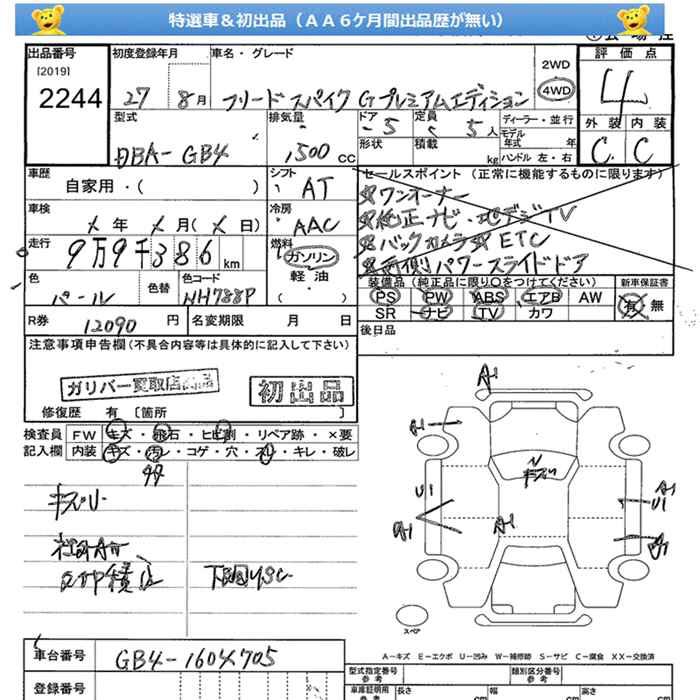 特選車&初出品（ＡＡ６ケ月間出品歴が無い）
出品番号 初度登録年月 車名・グレード 評価点
[2019]
2244
27 8月 フリードスパイク Gプレミアムエディション
2WD
4WD
4
型式 排気量 ドア 定員 ディーラー・並行 外装 内装
モデル年式 年
DBA-GB4 1500 CC -5 5人 C C
形状 積載 kg ハンドル 左・右
車歴 シフト セールスポイント（正常に機能するものに限ります）
自家用・( ) AT ☆ワンオーナー
車検 冷房 ☆純正ナビ・地デジTV
年 月( 日) AAC ☆バックカメラ☆ETC
走行 燃料 ☆両側パワースライドドア
9万9千386km ガソリン
軽油
( )
色 色替 色コード
パール NH788P
装備品（純正品に限り○をつけてください） 新車保証書
PS PW ABS エアB AW 有 無
SR ナビ TV カワ
R券 12090 円 名変期限 月 日
後日品
注意事項申告欄(不具合内容等は具体的に記入して下さい)
ガリバー買取店出品 初出品
修復歴 有 [箇所 ]
検査員 FW キズ・飛石・ヒビ割・リペア跡・×要
記入欄 内装 キズ・汚レ・コゲ・穴・スレ・キレ・破レ
A-1
A-1
キズ
U1
A-1
A-1
U1
キズU
下回りSC
スペア
A－キズ E－エクボ U－凹み W－補修跡 S－サビ C－腐食 XX－交換済
車台番号 GB4-1604705
登録番号
型式指定番号 類別区分番号
参考 参考
車庫証明用 長さ 幅 高さ
参考 cm cm cm